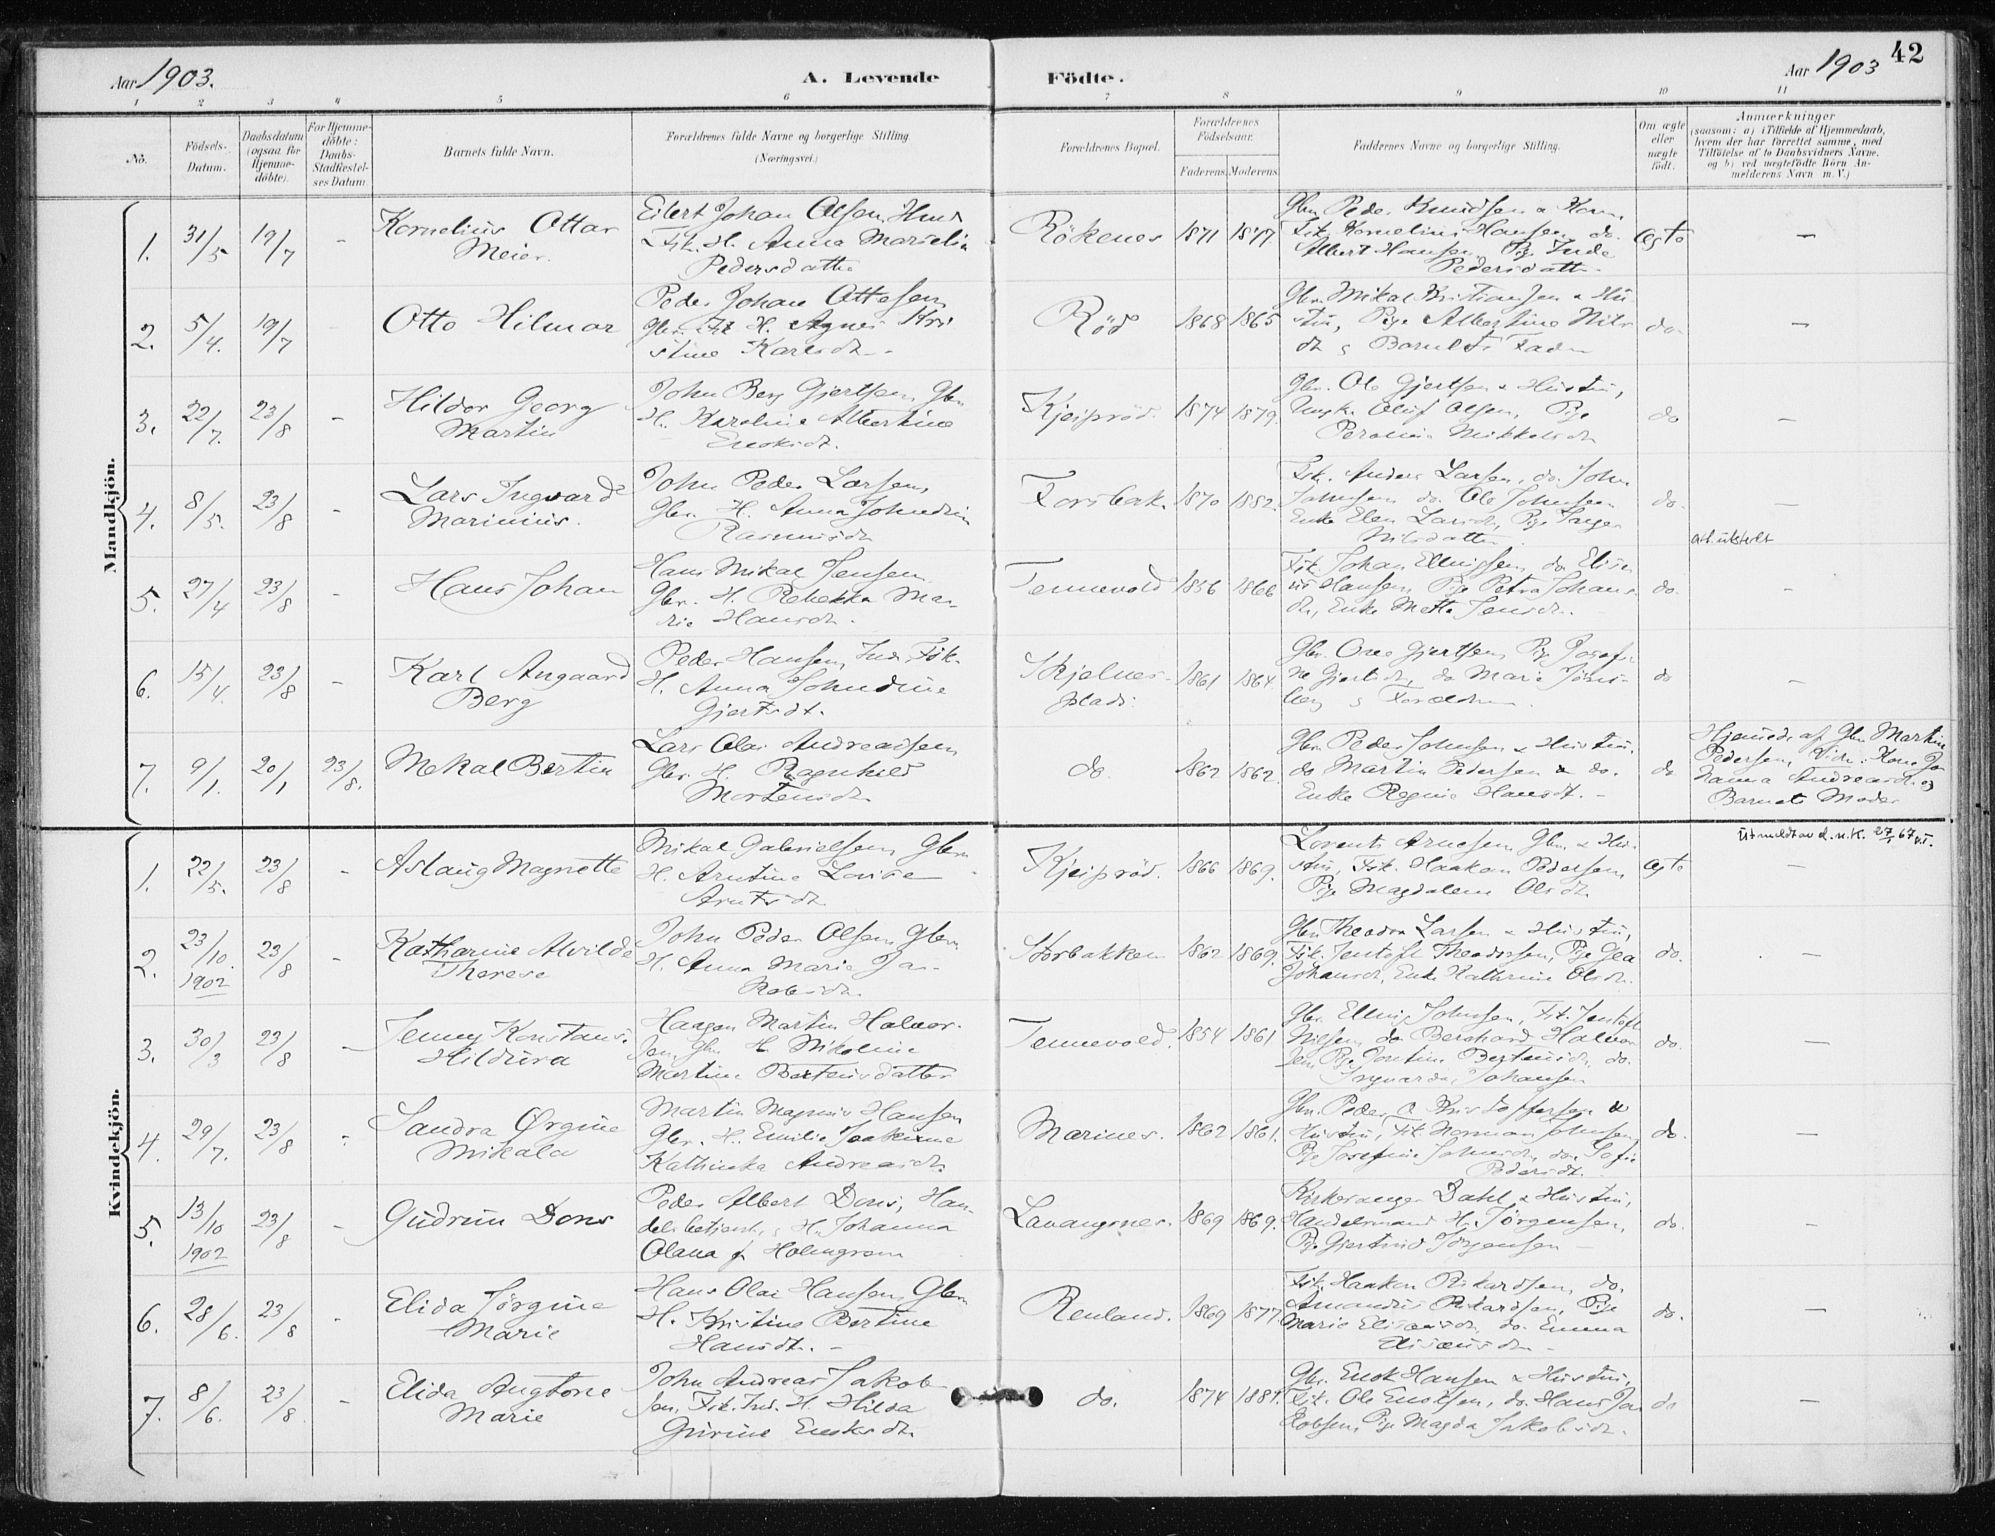 Aar 1903.
A. Levende
Födte.
Aar 1903
42
1 2 3 4 5 6 7 8 9 10 11
No.
Födsels-
Datum.
Daabsdatum
(ogsaa for
Hjemme-
döbte).
For Hjemme-
döbte:
Daabs-
Stadfæstel-
ses Datum
Barnets fulde Navn.
Forældrenes fulde Navne og borgerlige Stilling.
(Næringsvei.)
Forældrenes Bopæl.
Forældrenes
Födselsaar.
Faderens. Moderens.
Faddernes Navne og borgerlige Stilling.
Om ægte
eller
uægte
födt.
Anmærkninger
(saasom: a) i Tilfælde af Hjemmedaab,
hvem der har forrettet samme, med
Tilföielse af to Daabsvidners Navne.
og b) ved uægtefödte Börn An-
melderens Navn m. V.)
Mandkjön.
1.
31/5
19/7
-
Kornelius Ottar
Meier.
Eilert Johan Olsen,
Fisk. H. Anna Marselia
Pedersdatter
Rökenes
1871
1877
Gbr. Peder Knudsen & Kone,
Fisk. Kornelius Hansen, do.
Albert Hansen, Pige
Pedersdatt.
Ægte
-
2.
5/4.
19/7
Otto Hilmar
Peder Johan Ottesen,
Gbr. H. Agnes Kri
stine Karlsdt.
Röd
1868
1865
Gbr. Mikal Kristiansen & Hu
stru, Pige Albertine Nils
dt & Barnets Fader
do
-
3.
22/7.
23/8
-
Hildor Georg
Martin
John Berg Gjertsen, Gbr.
H. Karoline Albertine
Enoksdt.
Kjeipröd.
1874
1879.
Gbr. Ole Gjertsen & Hustru,
Ungk. Oluf Olsen, Pige
Mikkelsdtr
do
-
4.
8/5.
23/8
-
Lars Ingvard
Marinius.
John Peder Larsen,
Gbr. H. Anna Johndrine
Rasmusdtr
Forsbak.
1870
1882.
Fisk. Anders Larsen, do. John
Johnsen, do. Ole Johnsen
Enke Elen Larsdtr, Pige Inger
Nilsdatter
do.
-
att. utstedt
5.
27/4
23/8
-
Hans Johan
Hans Mikal Jensen
Gbr. H. Rebekka Ma-
rie Hansdtr.
Tennevold
1856
1866
Fisk. Johan Ellingsen, do. Elise
us Hansen, Pige Petra Johans
dtr, Enke Mette Jensdtr.
do.
-
6.
15/4.
23/8
-
Karl Angaard
Berg
Peder Hansen, Inds. Fisk.
H. Anna Johndine
Gjertsdt.
Skjelnes-
plads.
1861
1864.
Gbr. Ove Gjertsen, Pige Josefi
ne Gjertsdtr, do Marie
berg & Forældrene.
do
-
7.
9/1.
20/1
23/8.
Mekal Bertin
Lars Olai Andreassen
Gbr. H. Ragnhild
Mortensdtr
do.
1862
1862.
Gbr. Peder Johnsen & Hustru,
do Martin Pedersen & do.
Enke Regine Hansdt. -
do
Hjemmed. af Gbr. Martin
Pedersen, Vidn. Kone Jo
hanna Andreasdtr og
Barnets Moder
Kvindekjön.
1.
22/5.
23/8
-
Aslaug Magnette
Mikal Gabrielsen, Gbr.
H. Arntine Lovise
Arntsdtr
Kjeiprød.
1866
1869.
Lorents Arnesen Gbr. & Hu-
stru, Fisk. Haakon Pedersen,
Pige Magdalene Olsdtr
Ægte
-
Utmeldt av d. n. k. 27/1 67
2.
23/10.
1902
23/8
-
Katharine Alvilde
Therese
John Peder Olsen, Gbr.
H. Anna Marie Ja-
kobsdtr.
Storbakken
1862
1869.
Gbr. Theodor Larsen & Hustru,
Fisk. Jentoft Theodorsen, Pige Gea
Johansdtr, Enke Kathrine Olsdtr.
do.
-
3.
30/3
23/8
-
Jenny Konstanse
Hildura
Haagen Martin Halvor-
sen, Gbr. H. Nikoline
Martine Bertensdatter
Tennevold.
1854
1861
Gbr. Elling Johnsen, Fisk. Jentoft
Nielsen, do Bernhard Halvor
sen, Pige Jentine Bertensdtr, do.
Ingvarda Johansen
do.
-
4.
29/7.
23/8
-
Sandra Ørgine
Mikala
Martin Magnus Hansen
Gbr. H. Emilie Joakime
Kathinka Andreasdtr
Marines.
1862
1861.
Gbr. Peder A Kristoffersen &
Hustru, Fisk. Norman Johnsen,
Pige Josefine Johnsdtr, do. Sofie
Pedersdt.
do.
-
5.
13/10
1902
23/8
-
Gudrun Dons
Peder Albert Dons, Han-
delsbetjent, & H. Johanna
Olava f. Holmgren
Lavangsnes.
1869
1869.
Kirkesanger Dahl & Hustru,
Handelsmand H. Jørgensen,
Pige Gjertrud Jørgensen -
do.
-
6.
28/6.
23/8
-
Elida Jørgine
Marie
Hans Olai Hansen, Gbr.
H. Kristine Bertine
Hansdt. -
Renland.
1869
1877.
Fisk. Haakon Rikardsen, do.
Amandus Rikardsen, Pige
Marie Eliseusdtr, do. Emma
Eliseusdtr -
do.
-
7.
8/6.
23/8
-
Elida Angtone
Marie
John Andreas Jakob
sen, Fisk. Ind. H. Hilda
Gurine Enoksdtr
do.
1874
1881.
Gbr. Enok Hansen & Hustru,
Fisk. Ole Enoksen, do. Hans Ja
kobsen, Pige Magda Jakobsdtr.
do
-